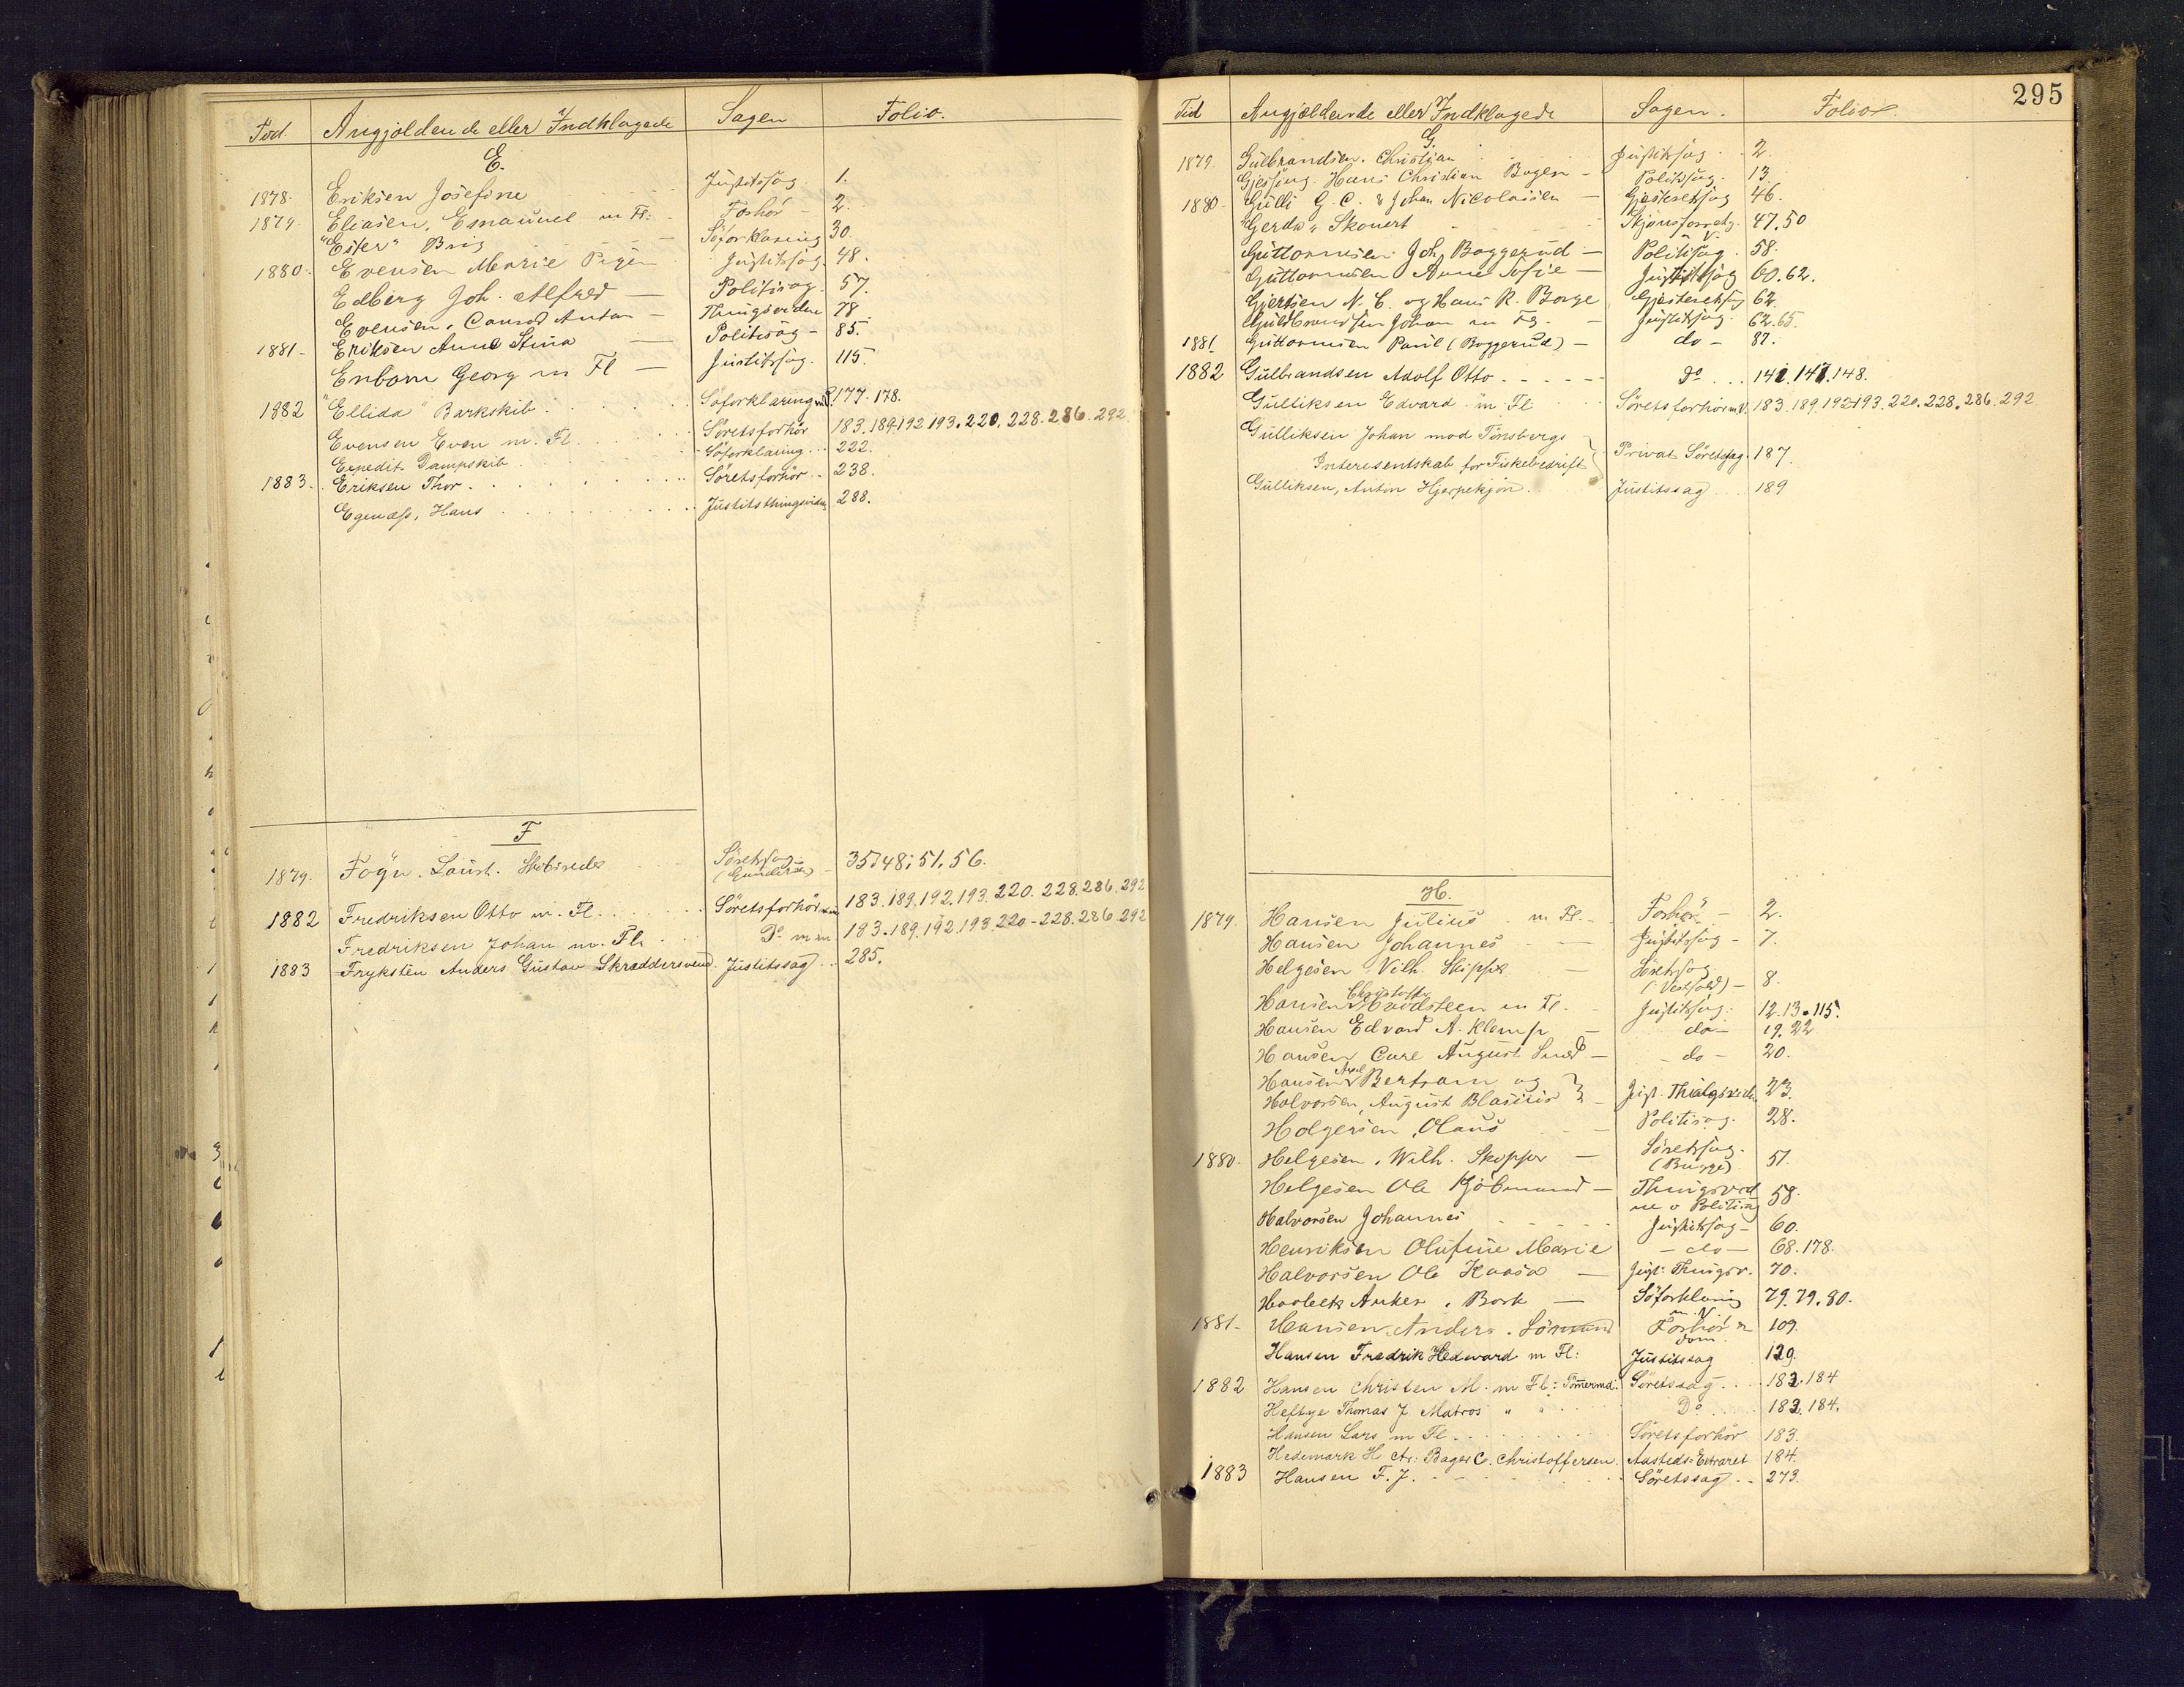 Tid. Angjældende eller Indklagede Sagen Folio.
E.
1878. Eriksen Josefine Justitssag 1.
1879. Eliasen, Emanuel m Fl: Forhør 2.
"Ester" Brig Søforklaring 30.
1880. Evensen Marie Pigen Justitssag. 48.
Edberg Joh. Alfred — Politisag. 57.
Evensen, Conrad Anton — Thingsvidne 78.
1881 Eriksen Anne Stina — Politisag 85.
Enbom Georg m Fl — Justitssag. 115.
1882 "Ellida" Barkskib Søforklaring 177. 178.
Evensen Even m. Fl. Søretsforhør 183.189.192 193.220.228.286.292
Expedit Dampskib Søforklaring 222.
1883. Eriksen Thor Søretsforhør 238.
Egenæss, Hans Justitsthingsvidne 288.
F
1879. Føyn. Laur. Skibsreder Søretssag (Gundersen) 35.48.51.56.
1882 Fredriksen Otto m. Fl. Søretsforhør 183.189.192.193.220.228.286.292
Fredriksen Johan m. Fl. Do 183.189.192.193.220-228.286.292
1883 Fryksten Anders Gustav Skræddersvend. Justitssag 285.
295
Tid Angjældende eller Indklagede Sagen. Folio
G.
1879. Gulbrandsen. Christian Justitssag 2.
Gjessing Hans Christian Bogen — Politisag. 13.
1880 Gulli G. C. & Johan Nicolaisen — Gjesteretsag 46.
"Gerda" Skonert Skjønsforretg. 47.50
Guttormsen Joh. Boggerud — Politisag 58.
Guttormsen Anne Sofie — Justitssag 60.62.
Gjertsen N. C. og Hans R. Borge Gjesteretsag 62.
Guldbrandsen Johan m Fl. — Justitssag. 62.65.
1881 Guttormsen Paul (Boggerud) — do — 87.
1882 Gulbrandsen Adolf Otto Do 141.147.148.
Gulliksen Edvard m Fl Søretsforhør 183.189.192.193.220.228.286.292
Gulliksen Johan mod Tønsbergs
Interesentskab for Fiskebedrift Privat Søretssag. 187
Gulliksen, Anton Hjerpekjøn Justitssag 189
H.
1879. Hansen Julius m Fl. Forhør — 2.
Hansen Johannes — Justitssag — 7.
Helgesen Vilh. Skipper — Søretssag
(Vestfold) — 8.
Hansen Christoffer Haadsteen m Fl. Justitssag. 12.13.115.
Hansen Edvard A. Klemp — do — 19.22
Hansen Carl August Smed — do — 20.
Hansen Axel Bertram og
Halvorsen, August Blasius — Just. Thingsvidne 23.
Holgersen, Olaus — Politisag. 28.
1880. Helgesen, Wilh. Skipper — Søretssag.
(Bugge) 51.
Helgesen Ole Kjøbmand — Thingsvid
ne o Politisag 58.
Halvorsen Johannes Justitssag — 60.
Henriksen Olufine Marie — do — 68.178.
Halvorsen Ole Kaasa — Just. Thingsv. 70.
Hoobeck Anker, Bark — Søforklaring 79.79.80.
1881. Hansen Anders. Sømand Forhør &
dom. 109.
Hansen Fredrik Hedevard m Fl: Justitssag 129.
1882 Hansen Christen M. m Fl: Tømmermd. Søretssag 183.184
Heftye Thomas J. Matros " " Do 183.184.
Hansen Lars m Fl Søretsforhør 183.
Hedemark H ctr: Bager C. Christoffersen. Aasteds-Extraret 184.
1883 Hansen F. J. Søretssag 273.